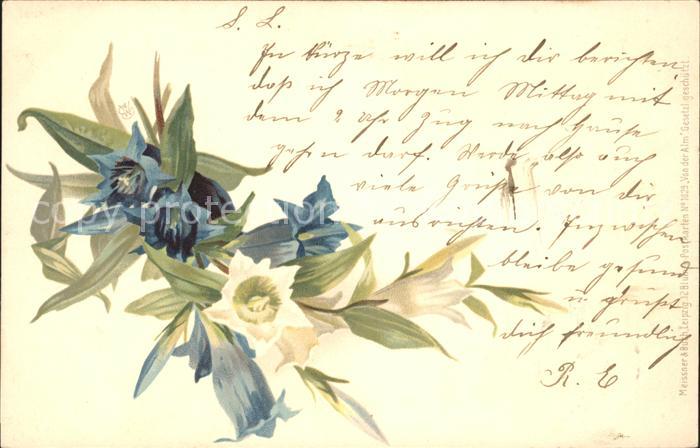 S. L.
In Kürze will ich dir berichten,
daß ich Morgen Mittag mit
dem 2 Uhr Zug nach Hause
gehen darf. Werde also auch
viele Grüße von dir
ausrichten. Inzwischen
bleibe gesund
u. grüßt
dich freundlich
R. E
copy protection
Meissner & Buch Leipzig 12 Blumen Postkarten No 1029 "Von der Alm" Gesetzl. geschützt.